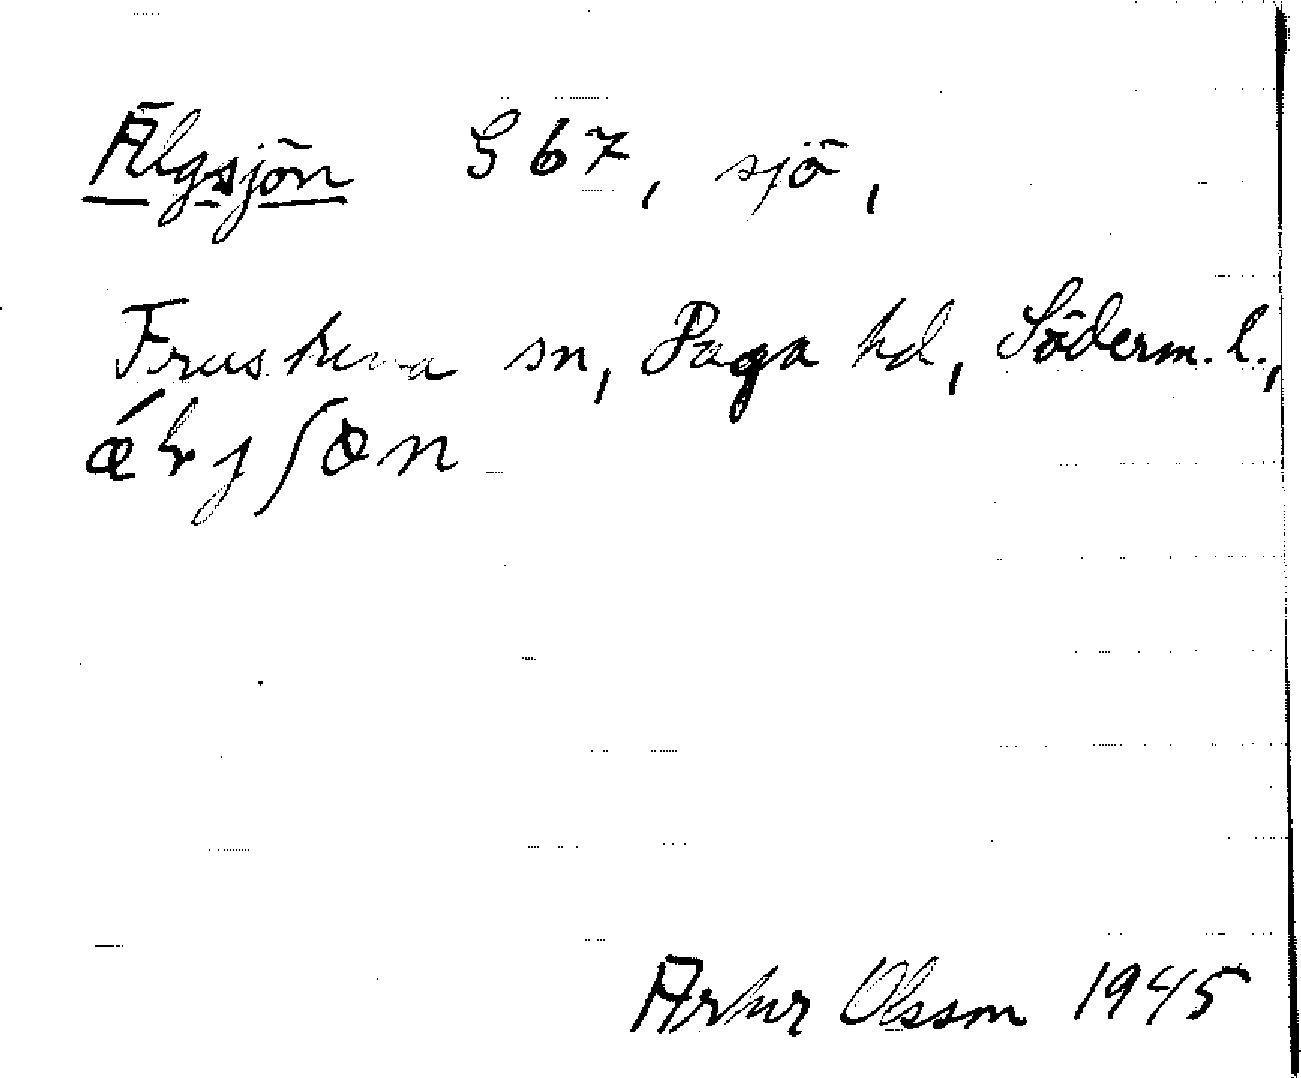 Älgsjön S 67, sjö,
Frustuna sn, Daga hd, Söderm. l.,
ǽlvjʃøn
Artur Olsson 1945